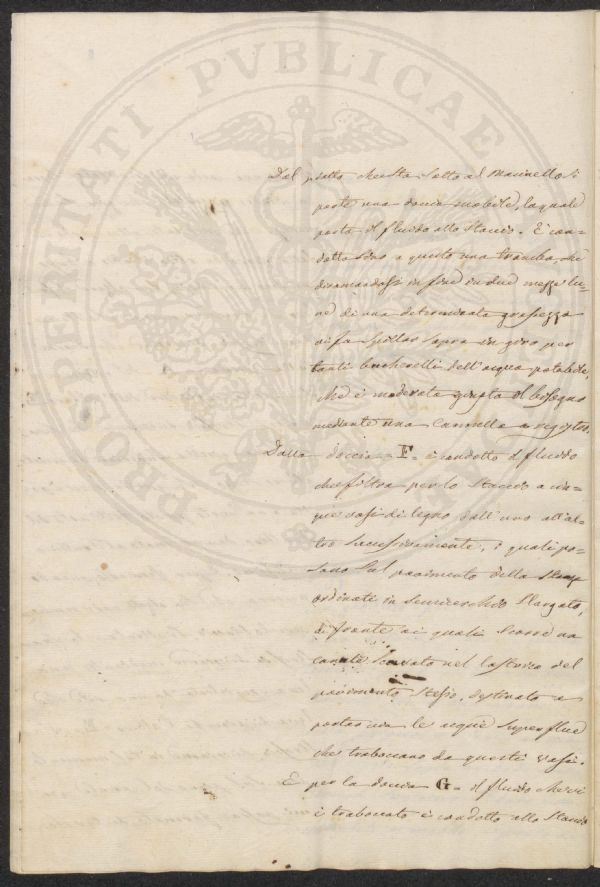 PROSPERITATI PUBLICAE
Dal piatto che sta sotto al Macinello si
parte una doccia mobile, la quale
porta il fluido allo staccio. È con-
dotta sino a questo una tromba, che
diramandosi in fine in due mezze lu-
ne di una determinata grossezza
vi fa spillar sopra in giro per
tanti bucherelli dell'acqua potabile,
che è moderata giusta il bisogno
mediante una cannella a registro.
Dalla doccia F. è condotto il fluido
che filtra per lo staccio a cin-
que vasi di legno dall'uno all'al-
tro successivamente, i quali po-
sano sul pavimento della
ordinati in semicerchio slargato,
di fronte ai quali scorre un
canale scavato nel lastrico del
pavimento stesso, destinato a
portar via le acque superflue
che traboccano da questi vasi.
E per la doccia G. il fluido che vi
è traboccato è condotto allo staccio